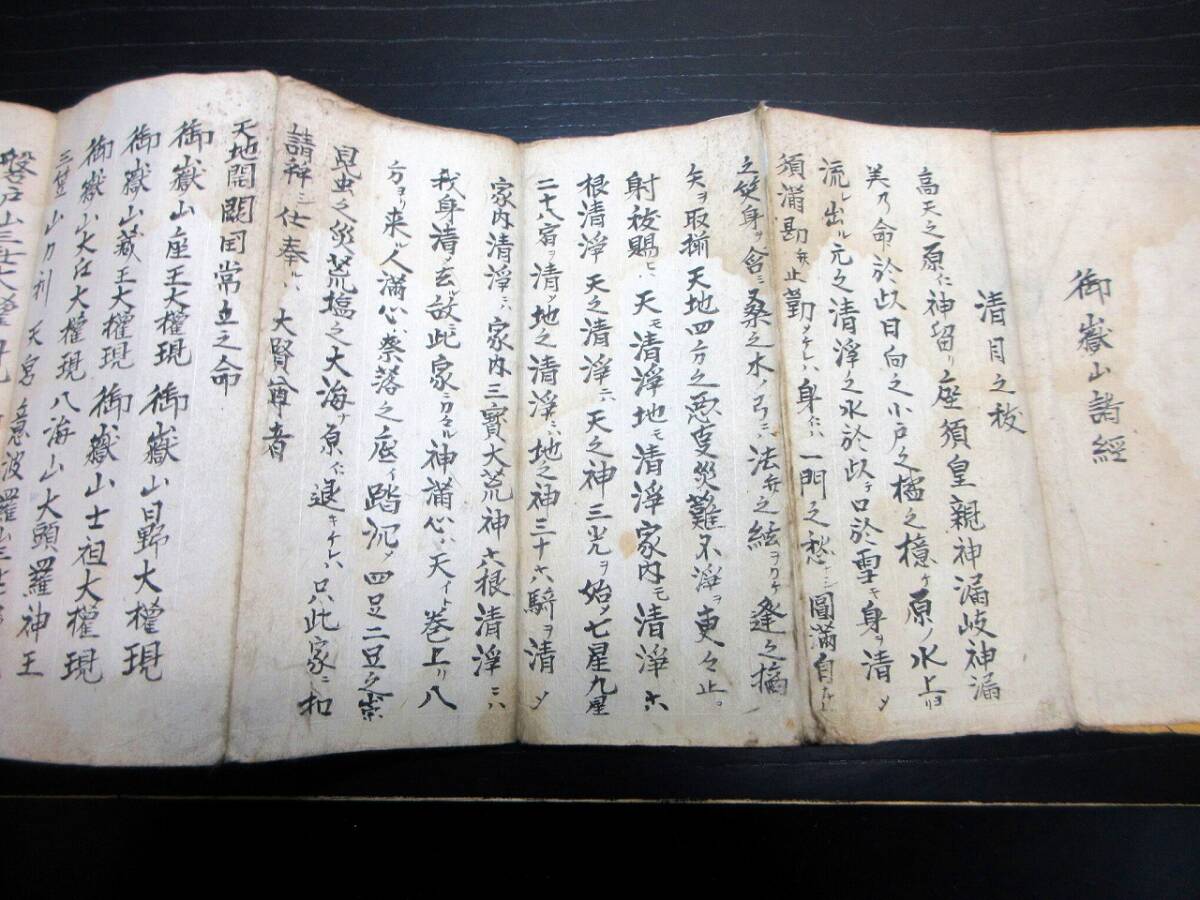 御嶽山諸経
清目之祓
高天之原ニ神留リ座須皇親神漏岐神漏
美乃命於以日向之小戸之橘之檍ヶ原ノ水上ヨリ
流ル出ル元之清浄之水於以テ口於雪キ身ヲ清メ
須満勘弁止勤メケレハ身ニハ一門之愁ナシ圓満自在
之笑身ヲ含ミ桑之木ノ弓ニハ法弁之絃ヲカケ逢之橘
矢ヲ取揃天地四方之悪隻災難不浄ヲ吏々止ヲ
射祓賜ヒハ天モ清浄地モ清浄家内モ清浄六
根清浄天之清浄ニハ天之神三光ヲ始メ七星九座
二十八宿ヲ清メ地之清浄ニハ地之神三十六騎ヲ清メ
家内清浄ニハ家内三寳大荒神六根清浄ニハ
我身清メ玄ル故ニ此家ニカヽル神満心ハ天イト巻上リ八
方ヨリ来ル人満心ハ奈落之底イ踏沉メ四足二足之祟
昆虫之災荒塩之大海ナ原ニ退キケレハ只此家ニ和
請稱シ仕奉ルハ大賢尊者
天地開闢国常立之命
御嶽山座王大權現御嶽山日野大權現
御嶽山蔵王大權現御嶽山士祖大權現
御嶽山大江大權現八海山大頭羅神王
三笠山刀利天宮意波羅山三世
磐戸山三世大權現